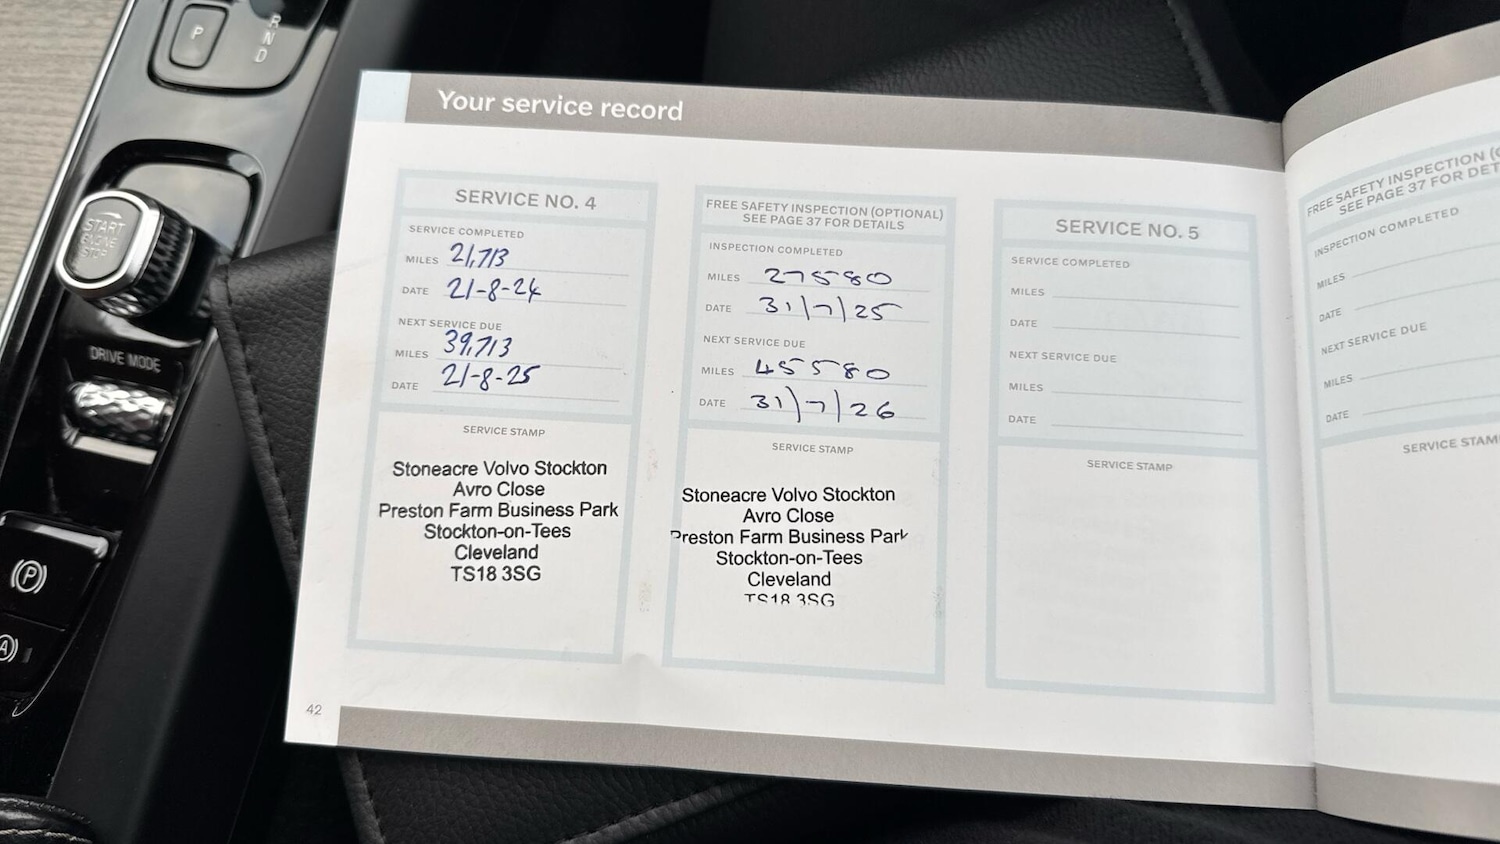 P
R
N
D
START
ENGINE
STOP
DRIVE MODE
(P)
(A)
Your service record
SERVICE NO. 4
SERVICE COMPLETED
MILES 21,713
DATE 21-8-24
NEXT SERVICE DUE
MILES 39,713
DATE 21-8-25
SERVICE STAMP
Stoneacre Volvo Stockton
Avro Close
Preston Farm Business Park
Stockton-on-Tees
Cleveland
TS18 3SG
42
FREE SAFETY INSPECTION (OPTIONAL)
SEE PAGE 37 FOR DETAILS
INSPECTION COMPLETED
MILES 27580
DATE 31/7/25
NEXT SERVICE DUE
MILES 45580
DATE 31/7/26
SERVICE STAMP
Stoneacre Volvo Stockton
Avro Close
Preston Farm Business Park
Stockton-on-Tees
Cleveland
TS18 3SG
SERVICE NO. 5
SERVICE COMPLETED
MILES
DATE
NEXT SERVICE DUE
MILES
DATE
SERVICE STAMP
FREE SAFETY INSPECTION (O
SEE PAGE 37 FOR DET
INSPECTION COMPLETED
MILES
DATE
NEXT SERVICE DUE
MILES
DATE
SERVICE STAM